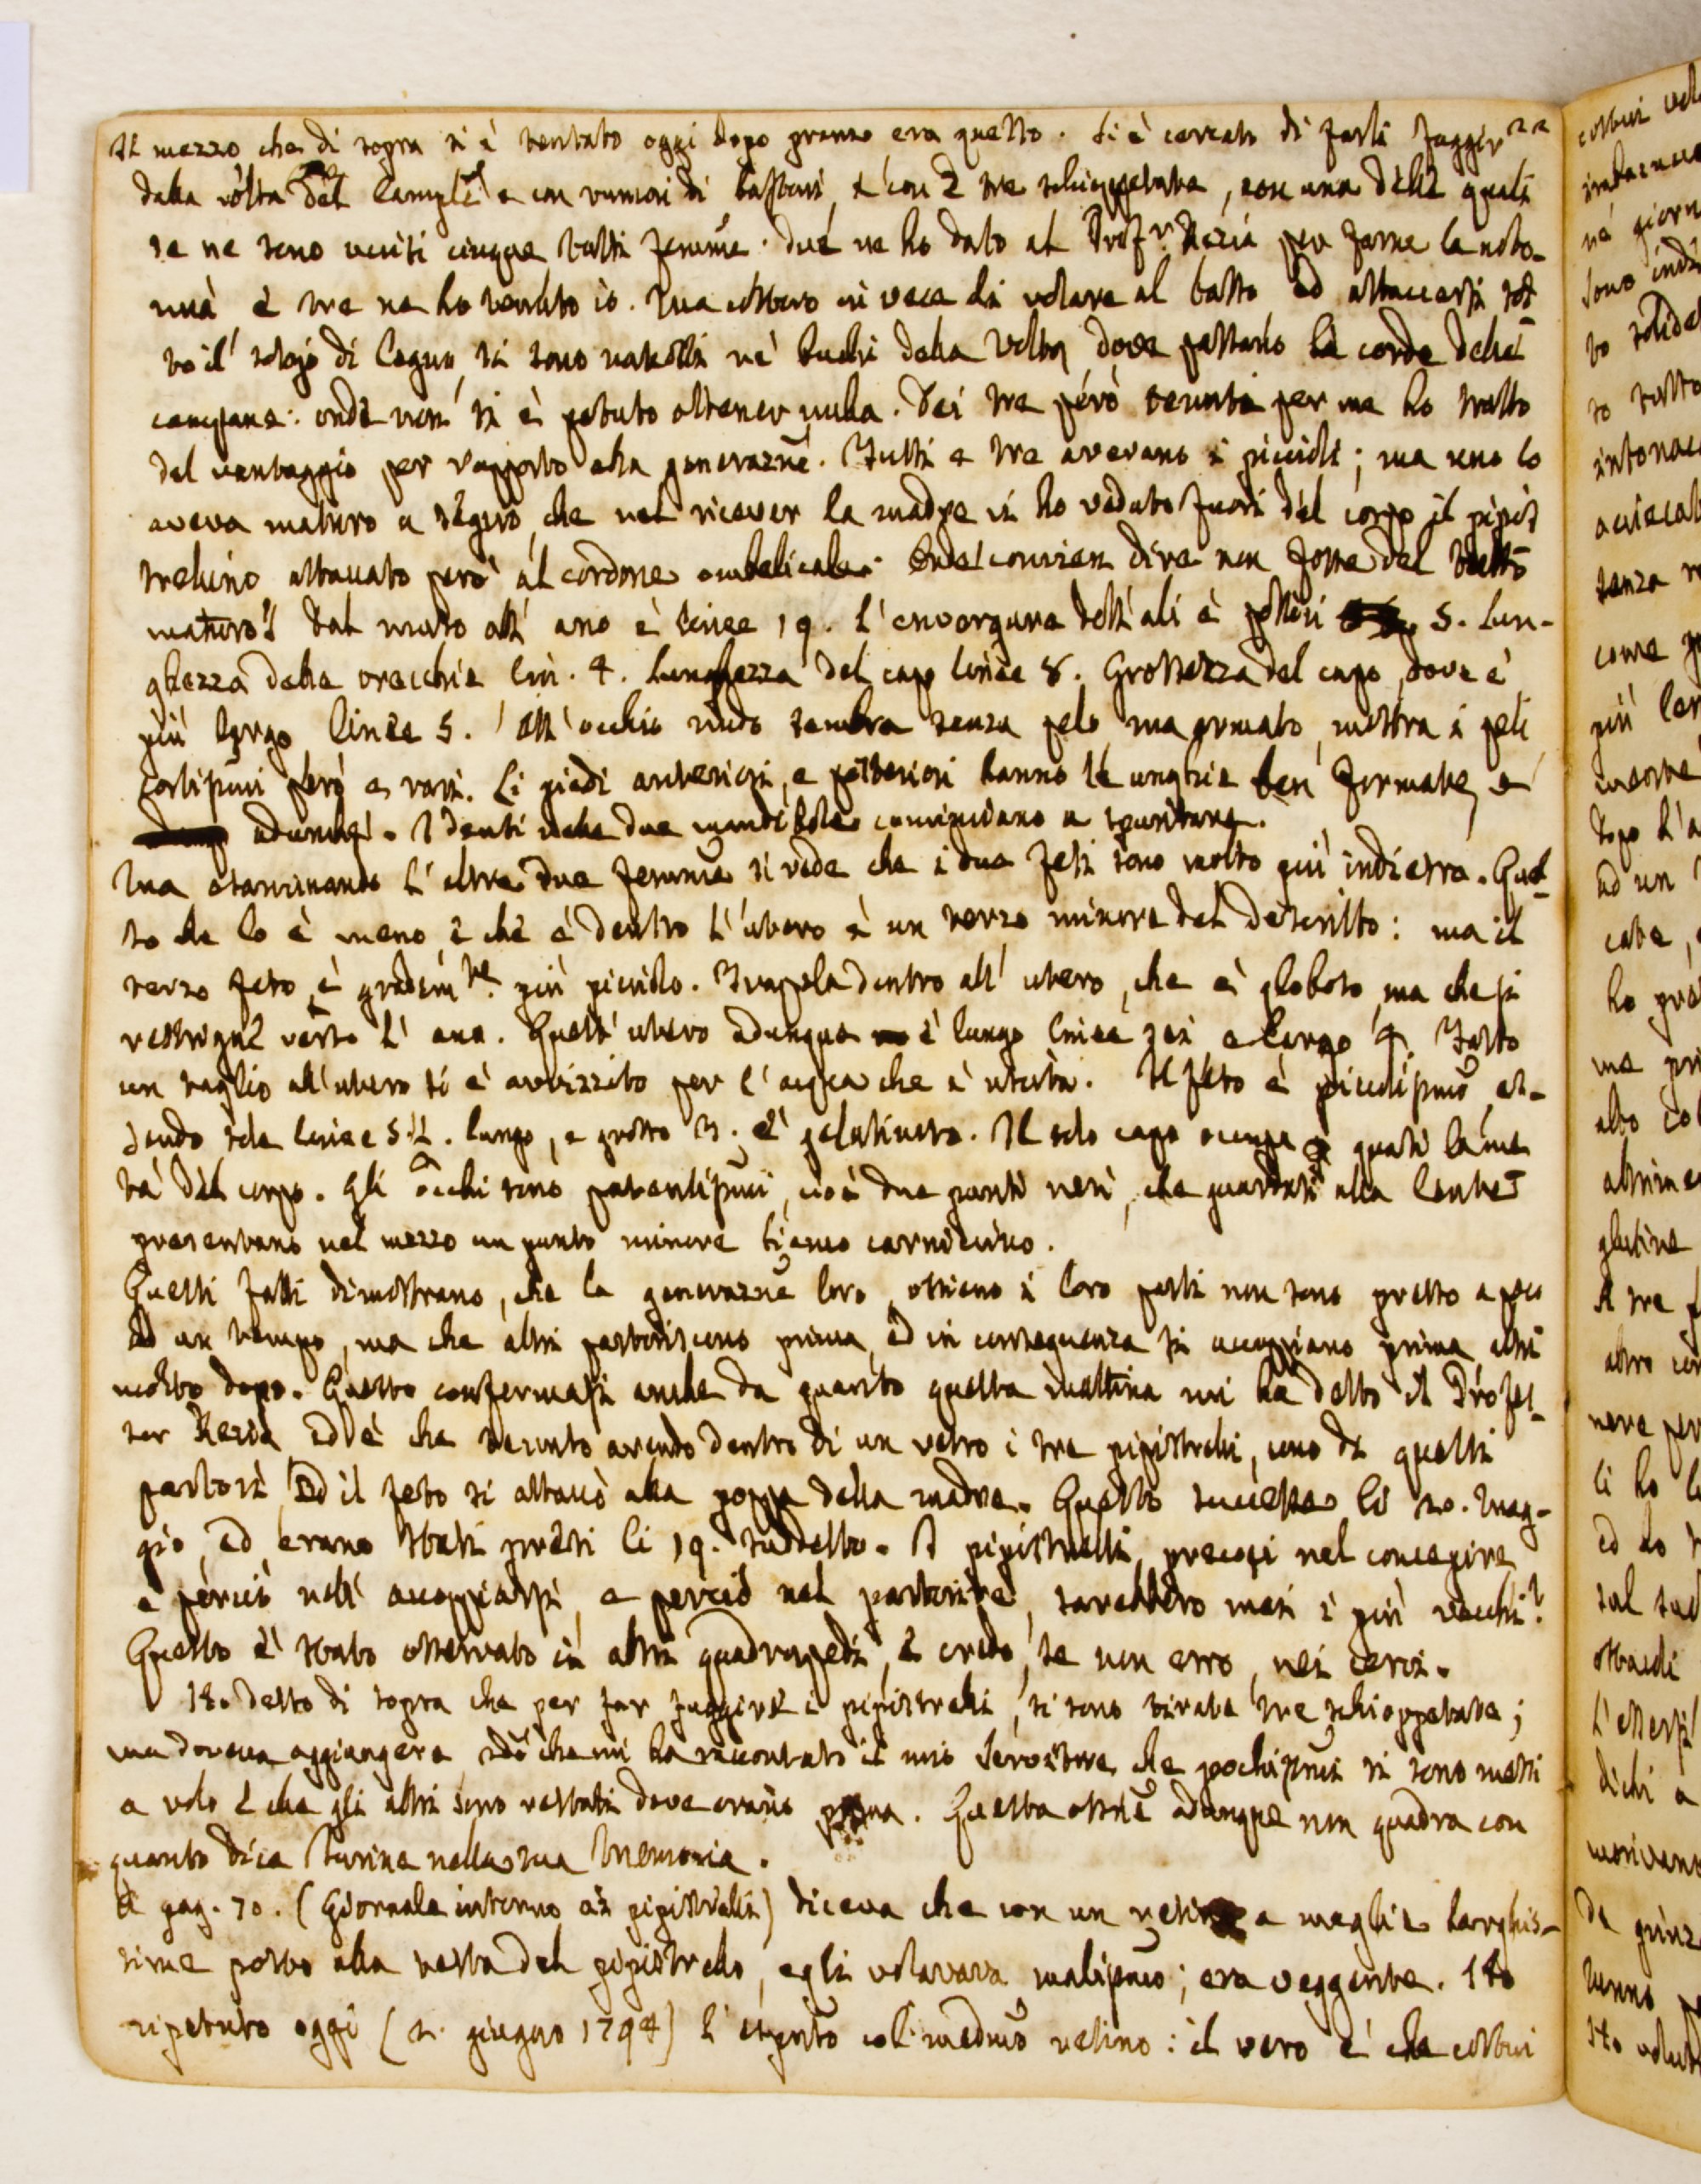 Il mezzo che di sopra si è tentato oggi dopo pranzo era questo. Si è cercato di farli fuggir
dalla volta del e con rumori di bastoni, e con 2 tre schioppettate, con una delle quali
se ne sono usciti cinque tutti femine. due ne ho dato al Profr. Rezia per farne la noto-
mia e tre ne ho tenuto io. Ma costoro in vece di volare al basso ed attaccarsi sot
to il solajo di legno si sono nascosti ne' buchi della volta, dove passano le corde delle
campane: onde non si è potuto ottener nulla. Dei tre però tenuti per me ho tratto
del vantaggio per rapporto alla generazne. Tutti e tre avevano i piccioli; ma uno lo
aveva maturo a segno, che nel ricever la madre vi ho veduto fuori del corpo il pipis
trelino attaccato però al cordone ombelicale. Onde convien dire non fosse del tutto
maturo. Dal muso all' ano è linee 19. L'envergure dell' ali è pollici 5. Lun-
ghezza delle orecchie lin. 4. Lunghezza del capo linee 8. Grossezza del capo, dove è
più largo linee 5. All' occhio nudo sembra senza pelo, ma armato, mostra i peli
cortissmi però e rari. Li piedi anteriori, e posteriori hanno le unghie ben formate, e
adunche. I denti nelle due mandibole cominciano a spuntare.
Ma esaminando l' altre due femmine si vede che i due feti sono molto più indietro. Ques-
to che lo è meno, e che è dentro l' utero è un terzo minore del descritto: ma il
terzo feto è grandemte. più picciolo. Traspela dentro all' utero, che è globoso, ma che si
restrigne verso l' ano. Quest' utero adunque è lungo linee sei e largo 4. Fatto
un taglio all' utero si è avvizzito per l' acqua che è uscita. Il feto è piccolissmo, es-
sendo sole linee 5½. lungo, e grosso 3. è gelatinoso. Il solo capo occupa quasi la me
tà del corpo. Gli occhi sono patentissmi, cioè due punti neri, che guardati alla lente
presentano nel mezzo un punto minore bianco carnicino.
Questi fatti dimostrano, che la generazne loro, ossieno i loro parti non sono presso a poco
ad un tempo, ma che altri partoriscono prima, ed in conseguenza si accoppiano prima, altri
molto dopo. Questo confermasi anche da quanto questa mattina mi ha detto il Profes-
sor Rezia, ed è che tenuto avendo dentro di un vetro i tre pipistrelli, uno di questi
partorì, ed il feto si attaccò alla poppa della madre. Questo successe li 20. Mag-
gio, ed erano stati presi li 19. suddetto. I pipistrelli precoci nel concepire
e perciò nell' accoppiarsi, e perciò nel partorire, sarebbero mai i più vecchi?
Questo è stato osservato in altri quadrupedi, e credo, se non erro, nei cervi.
Ho detto di sopra che per far fuggire i pipistrelli, si sono tirate tre schioppettate;
ma doveva aggiungere ciò che mi ha raccontato il mio Servitore, che pochissmi si sono messi
a volo e che gli altri sono restati dove erano prima. Questa ossne adunque non quadra con
quanto dice Jurine nella sua Memoria.
A pag. 70. (Giornale intorno ai pipistrelli) diceva che con un retino a maglie larghis-
sime posto alla testa del pipistrello, egli volavava malissmo; era veggente. Ho
ripetuto oggi (2. giugno 1794) l' espmto col medmo retino: il vero è che costui